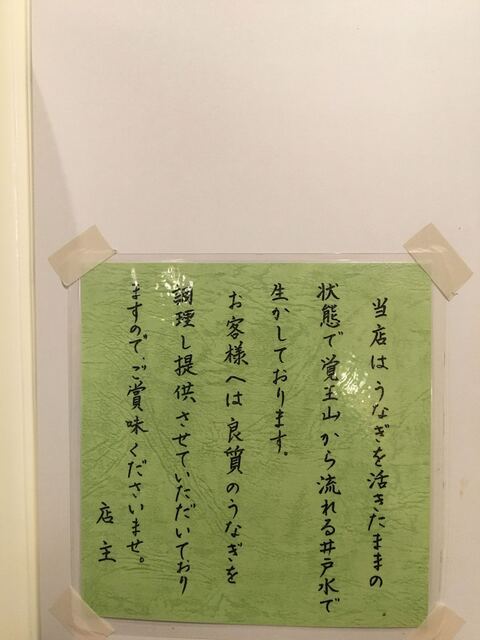 当店はうなぎを活きたままの
状態で覚王山から流れる井戸水で
生かしております。
お客様へは良質のうなぎを
調理し提供させていただいており
ますので、ご賞味くださいませ。
店主